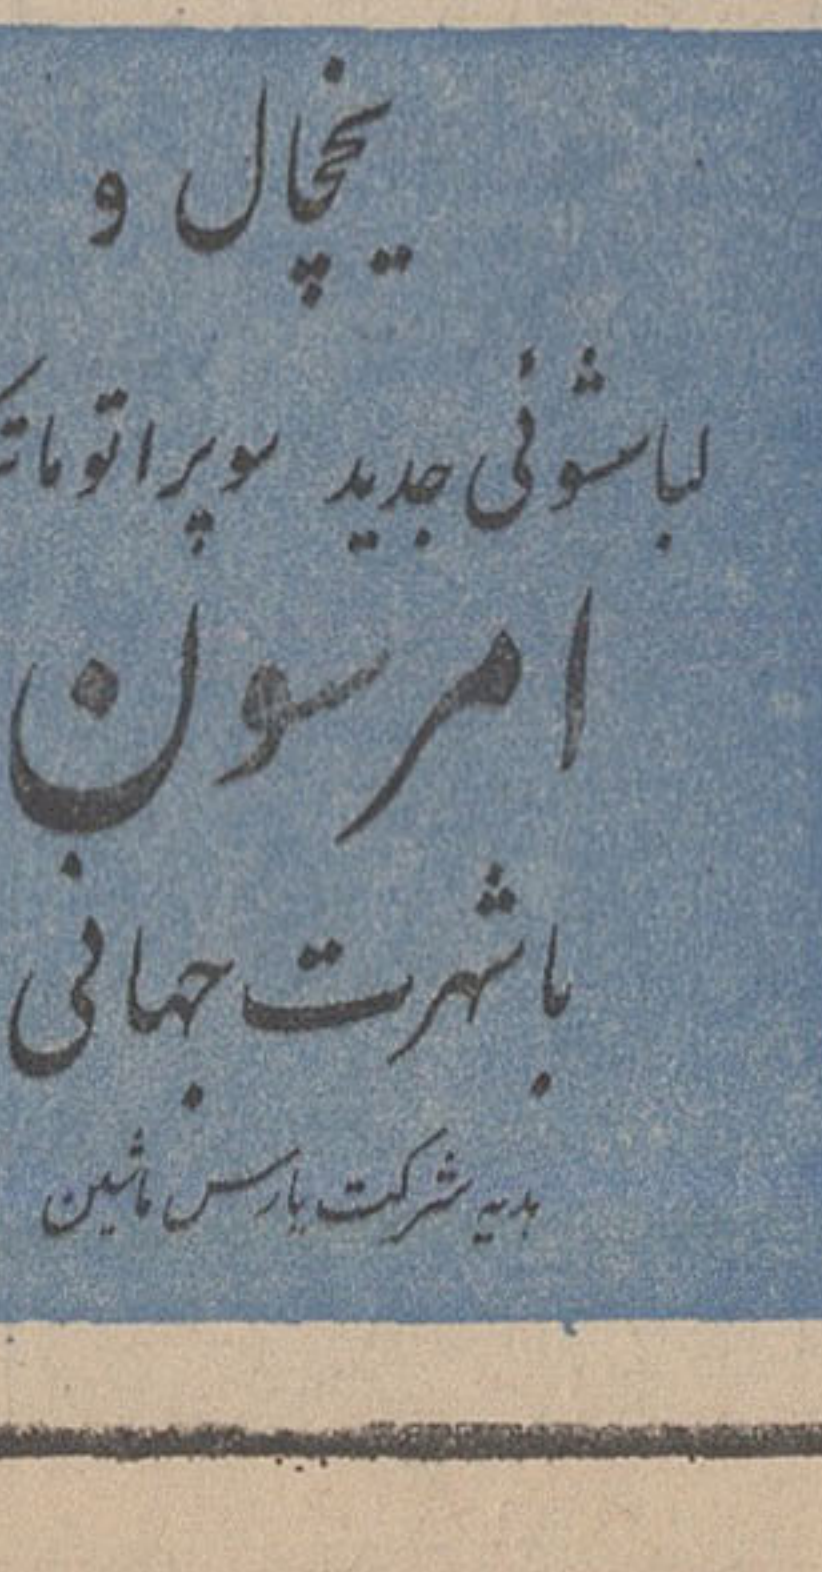 یخچال و
لباسشوئی جدید سوپر اتوماتیک
امرسون
با شهرت جهانی
هدیه شرکت پارس ماشین